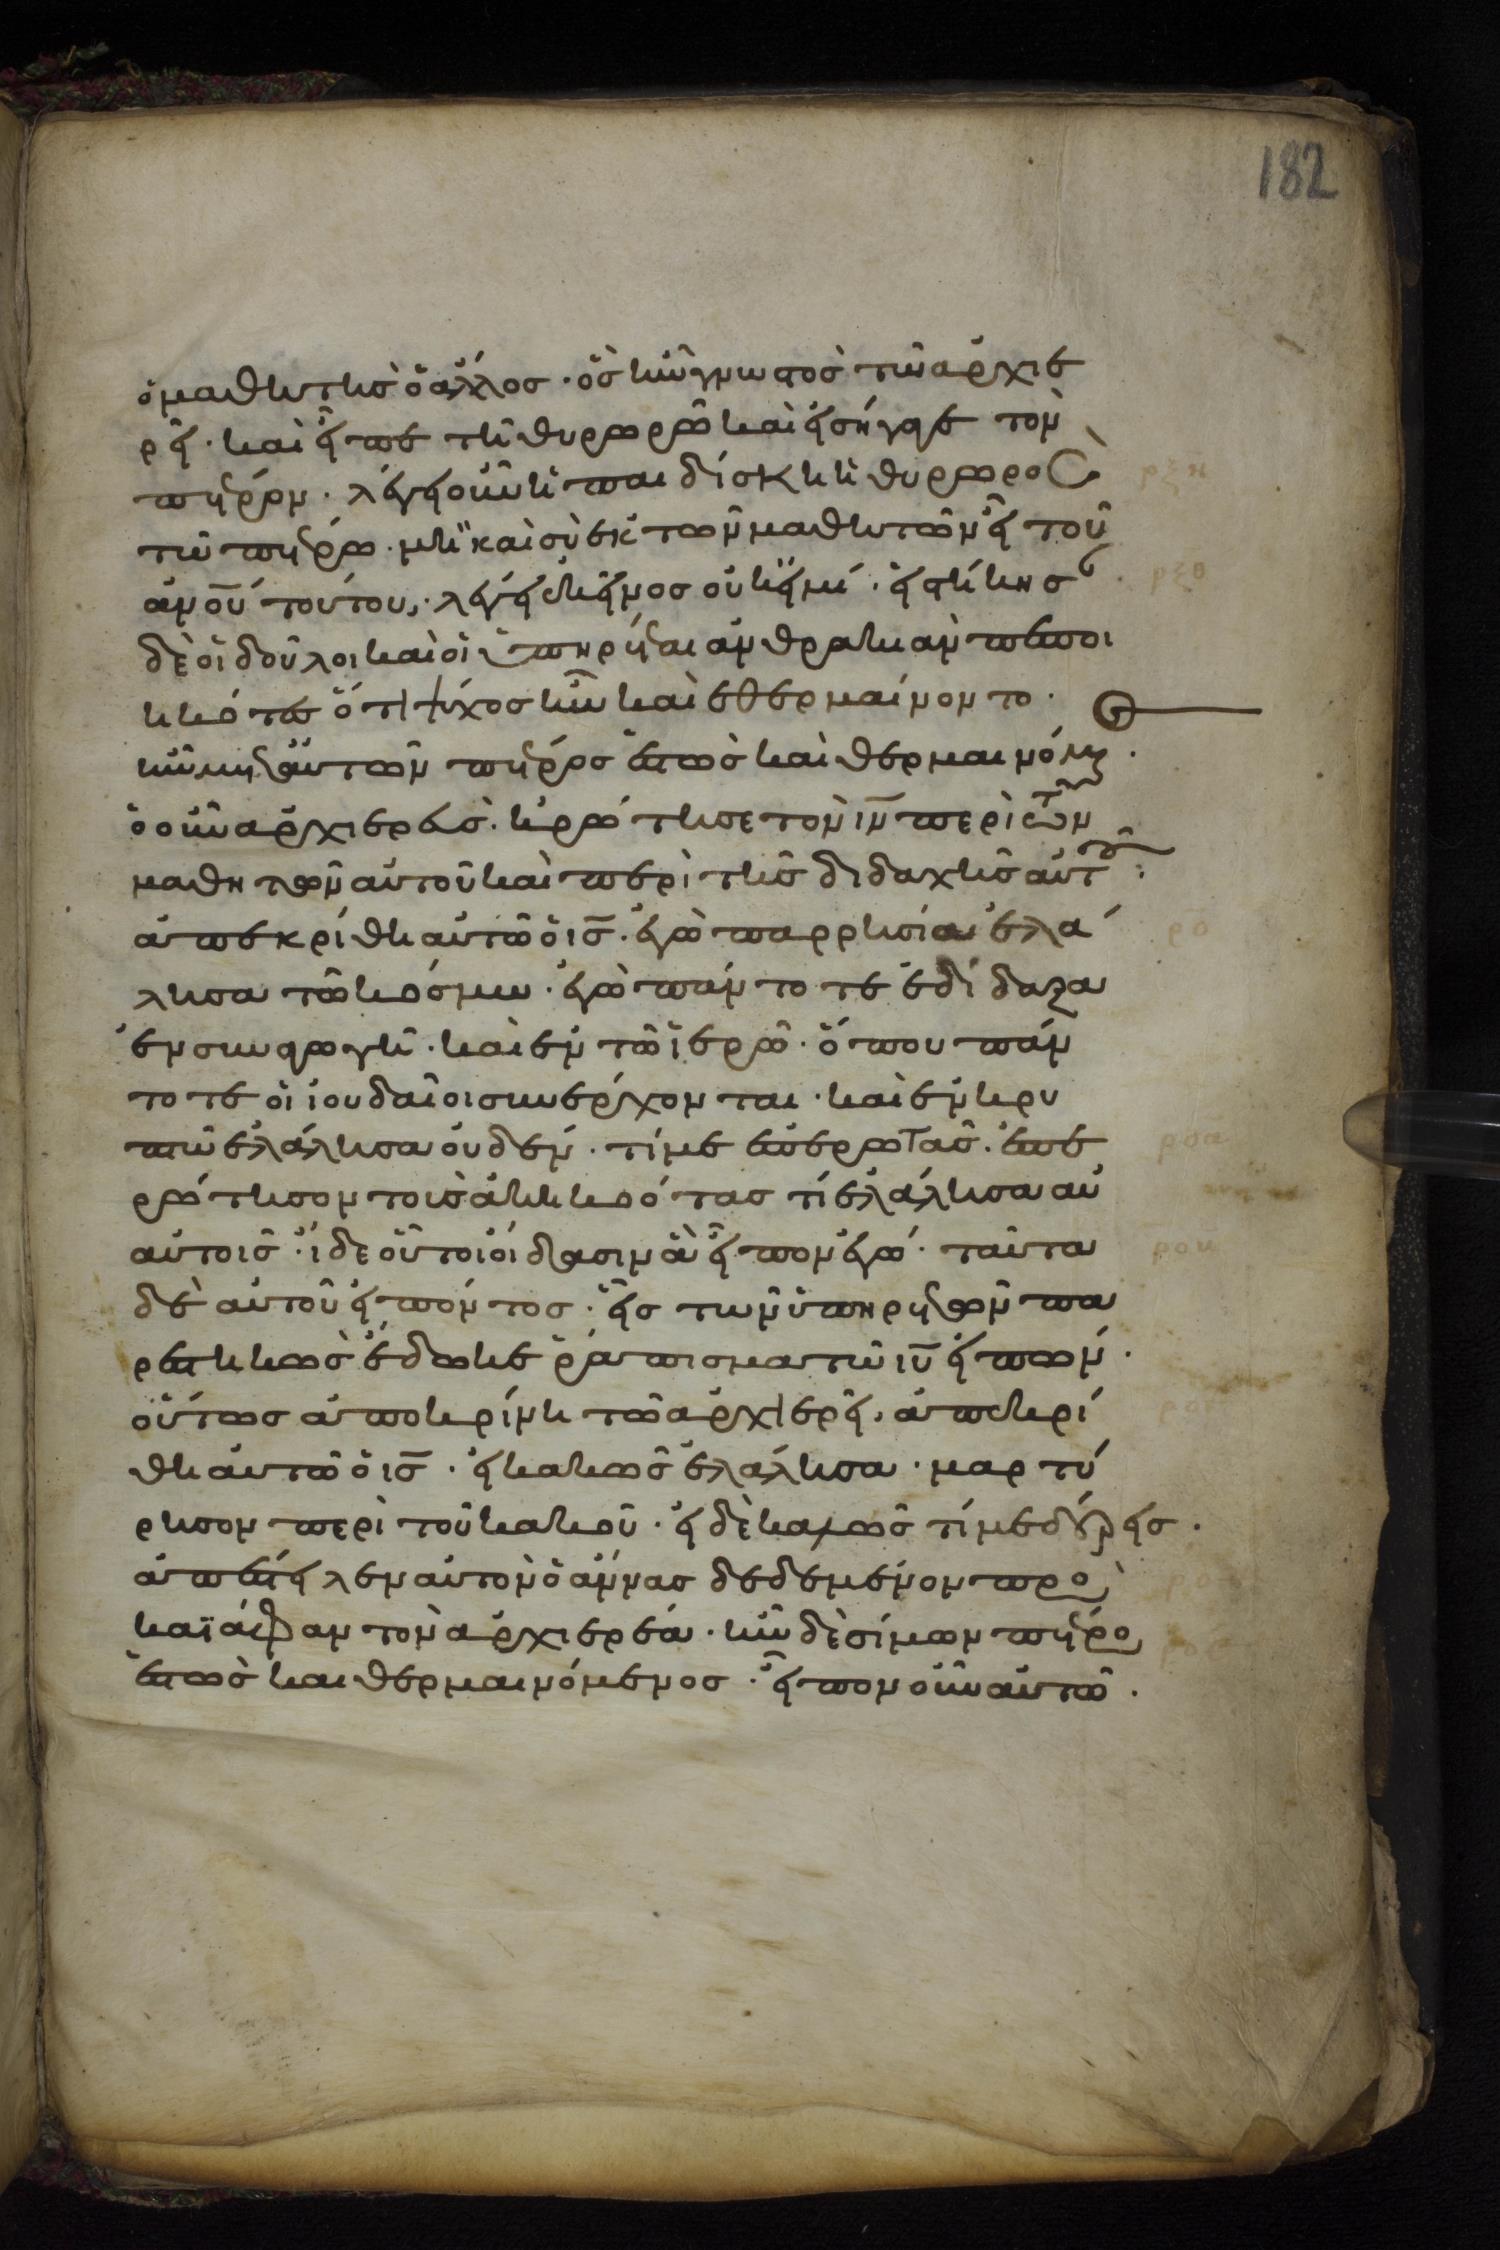 182
ὁ μαθητὴς ὁ ἄλλος · ὃς ἦν γνωστὸς τῶ ἀρχιε
ρεῖ · καὶ εἶπε τῆ θυρωρῶ καὶ εἰσήγαγε τὸν
πέτρον · λέγει οὖν ἡ παιδίσκη ἡ θυρωρὸς
τῶ πέτρω · μὴ καὶ σὺ ἐκ τῶν μαθητῶν εἶ τοῦ
ἀνου τούτου · λέγει ἐκεῖνος οὐκ εἰμί · εἱστήκησ
δὲ οἱ δοῦλοι καὶ οἱ ὑπηρέται ἀνθρακιὰν πεποι
ηκότες ὅτι ψύχος ἦν καὶ ἐθερμαίνοντο ·
ἦν μετ αὐτῶν πέτρος ἑστὼς καὶ θερμαινόμε ·
ὁ οὖν ἀρχιερεὺς · ἠρώτησε τὸν ιν περὶ τῶν
μαθητῶν αὐτοῦ καὶ περὶ τῆς διδαχῆς αὐτοῦ :
ἀπεκρίθη αὐτῶ ὁ ις · ἐγὼ παρρησία ἐλά
λησα τῶ κόσμω · ἐγὼ πάντοτε ἐδίδαξα
ἐν συναγωγῆ · καὶ ἐν τῶ ἱερῶ · ὅπου πάν
τοτε οἱ ἰουδαῖοι συνέρχονται · καὶ ἐν κρυ
πτῶ ἐλάλησα οὐδέν · τί με ἐπερωτᾶς · ἐπε
ρώτησον τοὺς ἀκηκοότας τί ἐλάλησα αὐ
αὐτοῖς · ἴδε οὗτοι οἴδασιν ἃ εἶπον ἐγώ · ταῦτα
δὲ αὐτοῦ εἰπόντος · εἷς τῶν ὑπηρετῶν πα
ρεστηκὼς ἔδωκε ῥάπισμα τῶ ιυ εἰπών ·
οὕτως ἀποκρίνη τῶ ἀρχιερεῖ · ἀπεκρί
θη αὐτῶ ὁ ις · εἰ κακῶς ἐλάλησα · μαρτύ
ρησον περὶ τοῦ κακοῦ · εἰ δὲ καλῶς τί με δέρεις ·
ἀπέστειλεν αὐτὸν ὁ ἄννας δεδεμένον πρὸ
καϊάφαν τὸν ἀρχιερέα · ἦν δὲ σίμων πέτρο
ἑστὼς καὶ θερμαινόμενος · εἶπον οὖν αὐτῶ ·
ρξη
ρξθ
ρο
ροα